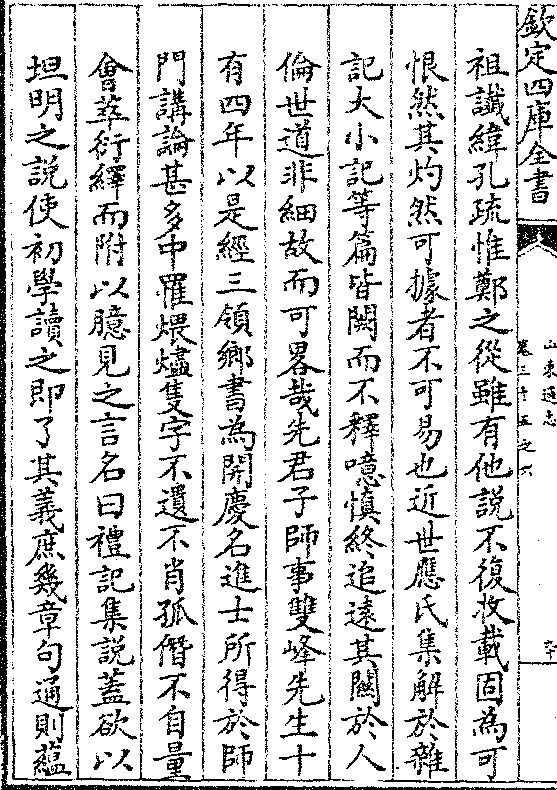 欽定四庫全書
山東通志
卷三十五之六
祖讖緯孔疏惟鄭之從雖有他說不復收載固為可
恨然其灼然可據者不可易也近世應氏集解於雜
記大小記等篇皆闕而不釋噫慎終追遠其關於人
倫世道非細故而可畧哉先君子師事雙峰先生十
有四年以是經三領鄉書為開慶名進士所得於師
門講論甚多中罹煨燼隻字不遺不肖孤僭不自量
會萃衍繹而附以臆見之言名曰禮記集說蓋欲以
坦明之說使初學讀之即了其義庶幾章句通則蘊